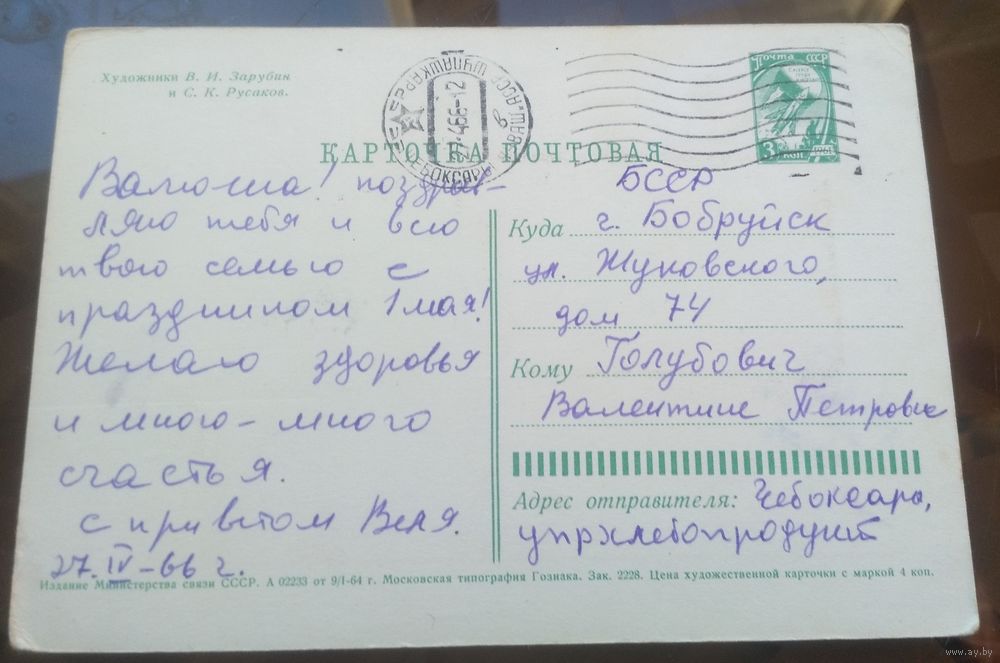 Художники В. И. Зарубин
и С. К. Русаков.
Почта СССР
3 коп
1961
КАРТОЧКА ПОЧТОВАЯ
Валюша! поздрав-
ляю тебя и всю
твою семью с
праздником 1 мая!
Желаю здоровья
и много-много
счастья.
с приветом Веля.
27. IV-66 г.
БССР
Куда г. Бобруйск
ул. Жуковского,
дом 74
Кому Голубович
Валентине Петровне
Адрес отправителя: Чебоксары,
упрхлебопродукт
Издание Министерства связи СССР. А 02233 от 9/I-64 г. Московская типография Гознака. Зак. 2228. Цена художественной карточки с маркой 4 коп.
www.ay.by